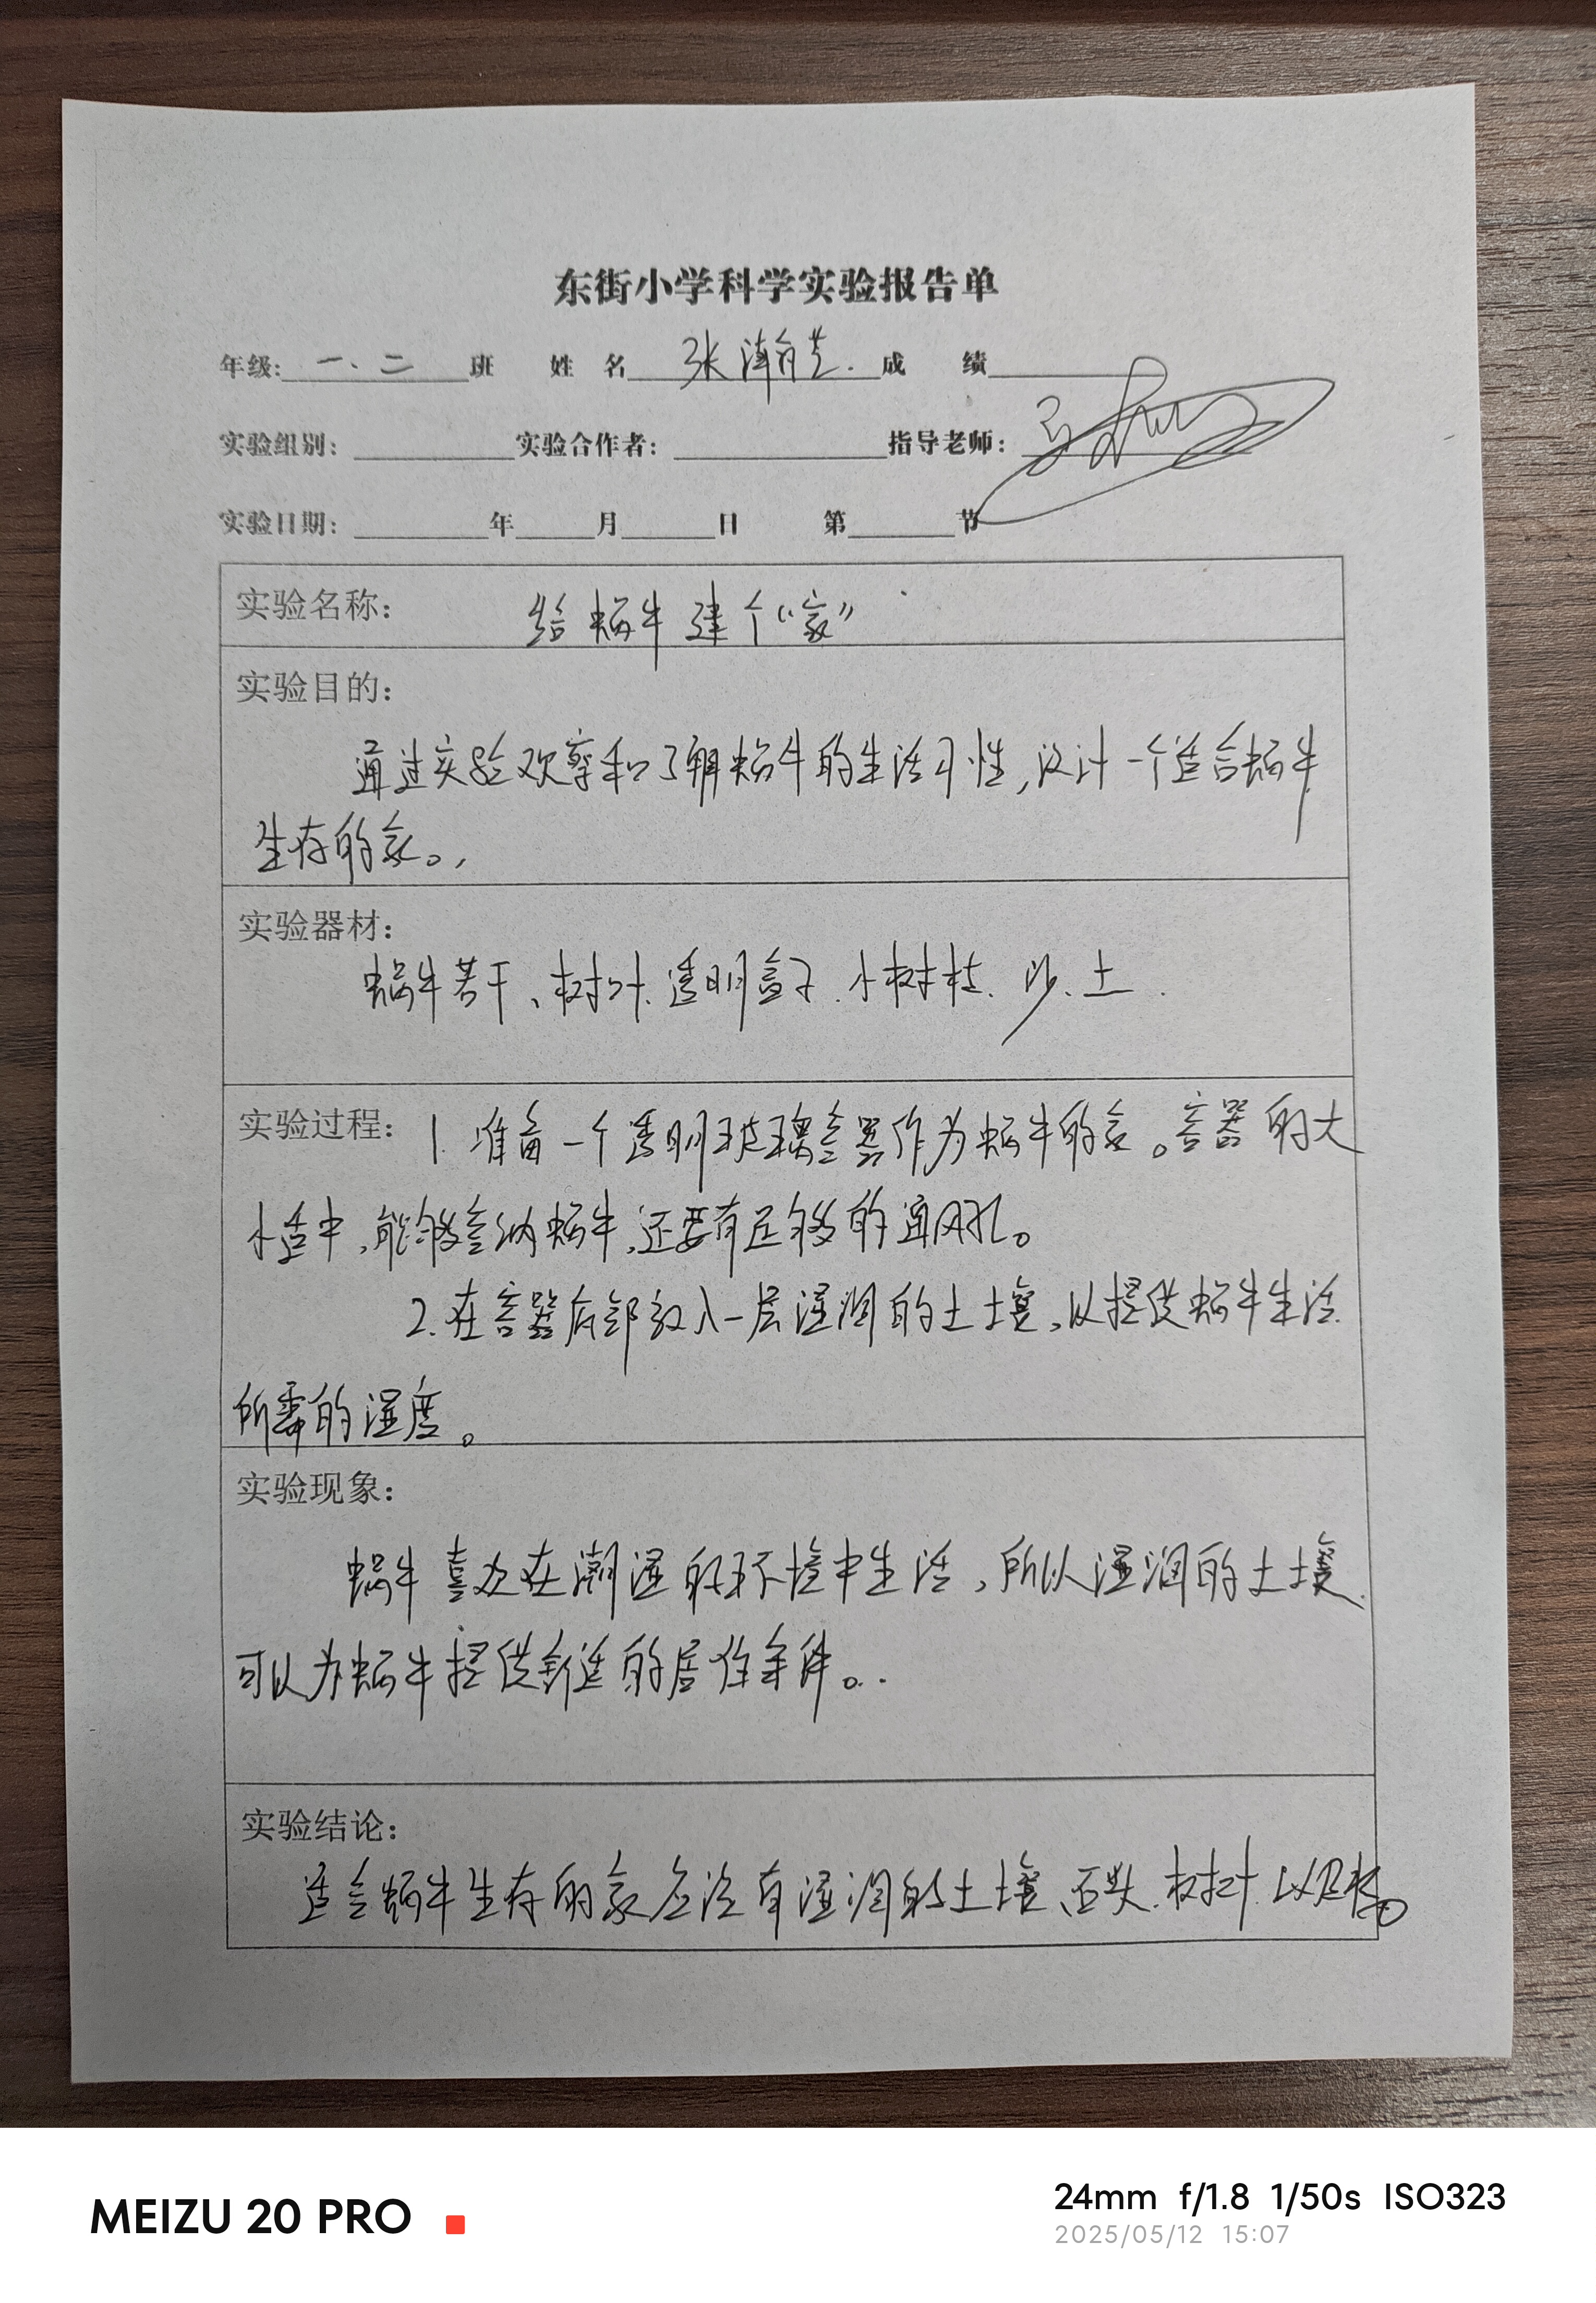 东街小学科学实验报告单
年级: 一.二 班 姓 名 张 成 绩
实验组别: 实验合作者: 指导老师:
实验日期: 年 月 日 第 节
实验名称: 给蜗牛建个“家”
实验目的:
通过实验观察和了解蜗牛的生活习性,设计一个适合蜗牛
生存的家。
实验器材:
蜗牛若干、树叶、透明盒子、小树枝、沙、土.
实验过程: 1. 准备一个透明玻璃容器作为蜗牛的家。容器的大
小适中,能够容纳蜗牛,还要有足够的通风孔。
2. 在容器底部放入一层湿润的土壤,以提供蜗牛生活
所需的湿度。
实验现象:
蜗牛喜欢在潮湿的环境中生活,所以湿润的土壤
可以为蜗牛提供舒适的居住条件。
实验结论:
适合蜗牛生存的家应该有湿润的土壤、石头、树叶、以及
MEIZU 20 PRO
24mm f/1.8 1/50s ISO323
2025/05/12 15:07